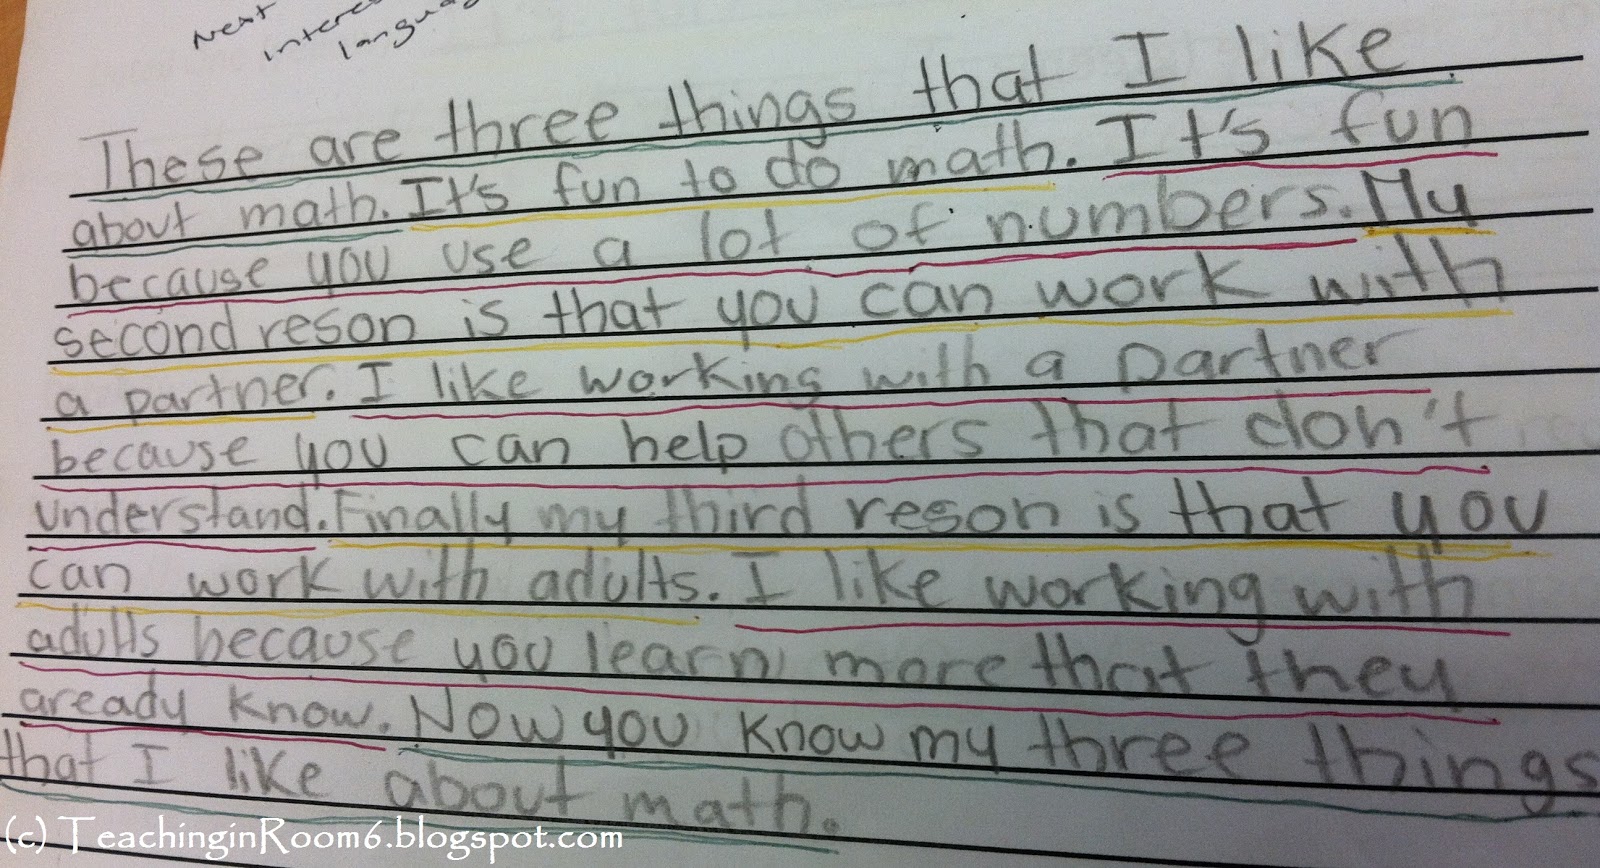 Next
These are three things that I like
about math. It's fun to do math. It's fun
because you use a lot of numbers. My
second reson is that you can work with
a partner. I like working with a partner
because you can help others that don't
understand. Finally my third reson is that you
can work with adults. I like working with
adults because you learn more that they
aready know. Now you know my three things
that I like about math.
(c) TeachinginRoom6.blogspot.com